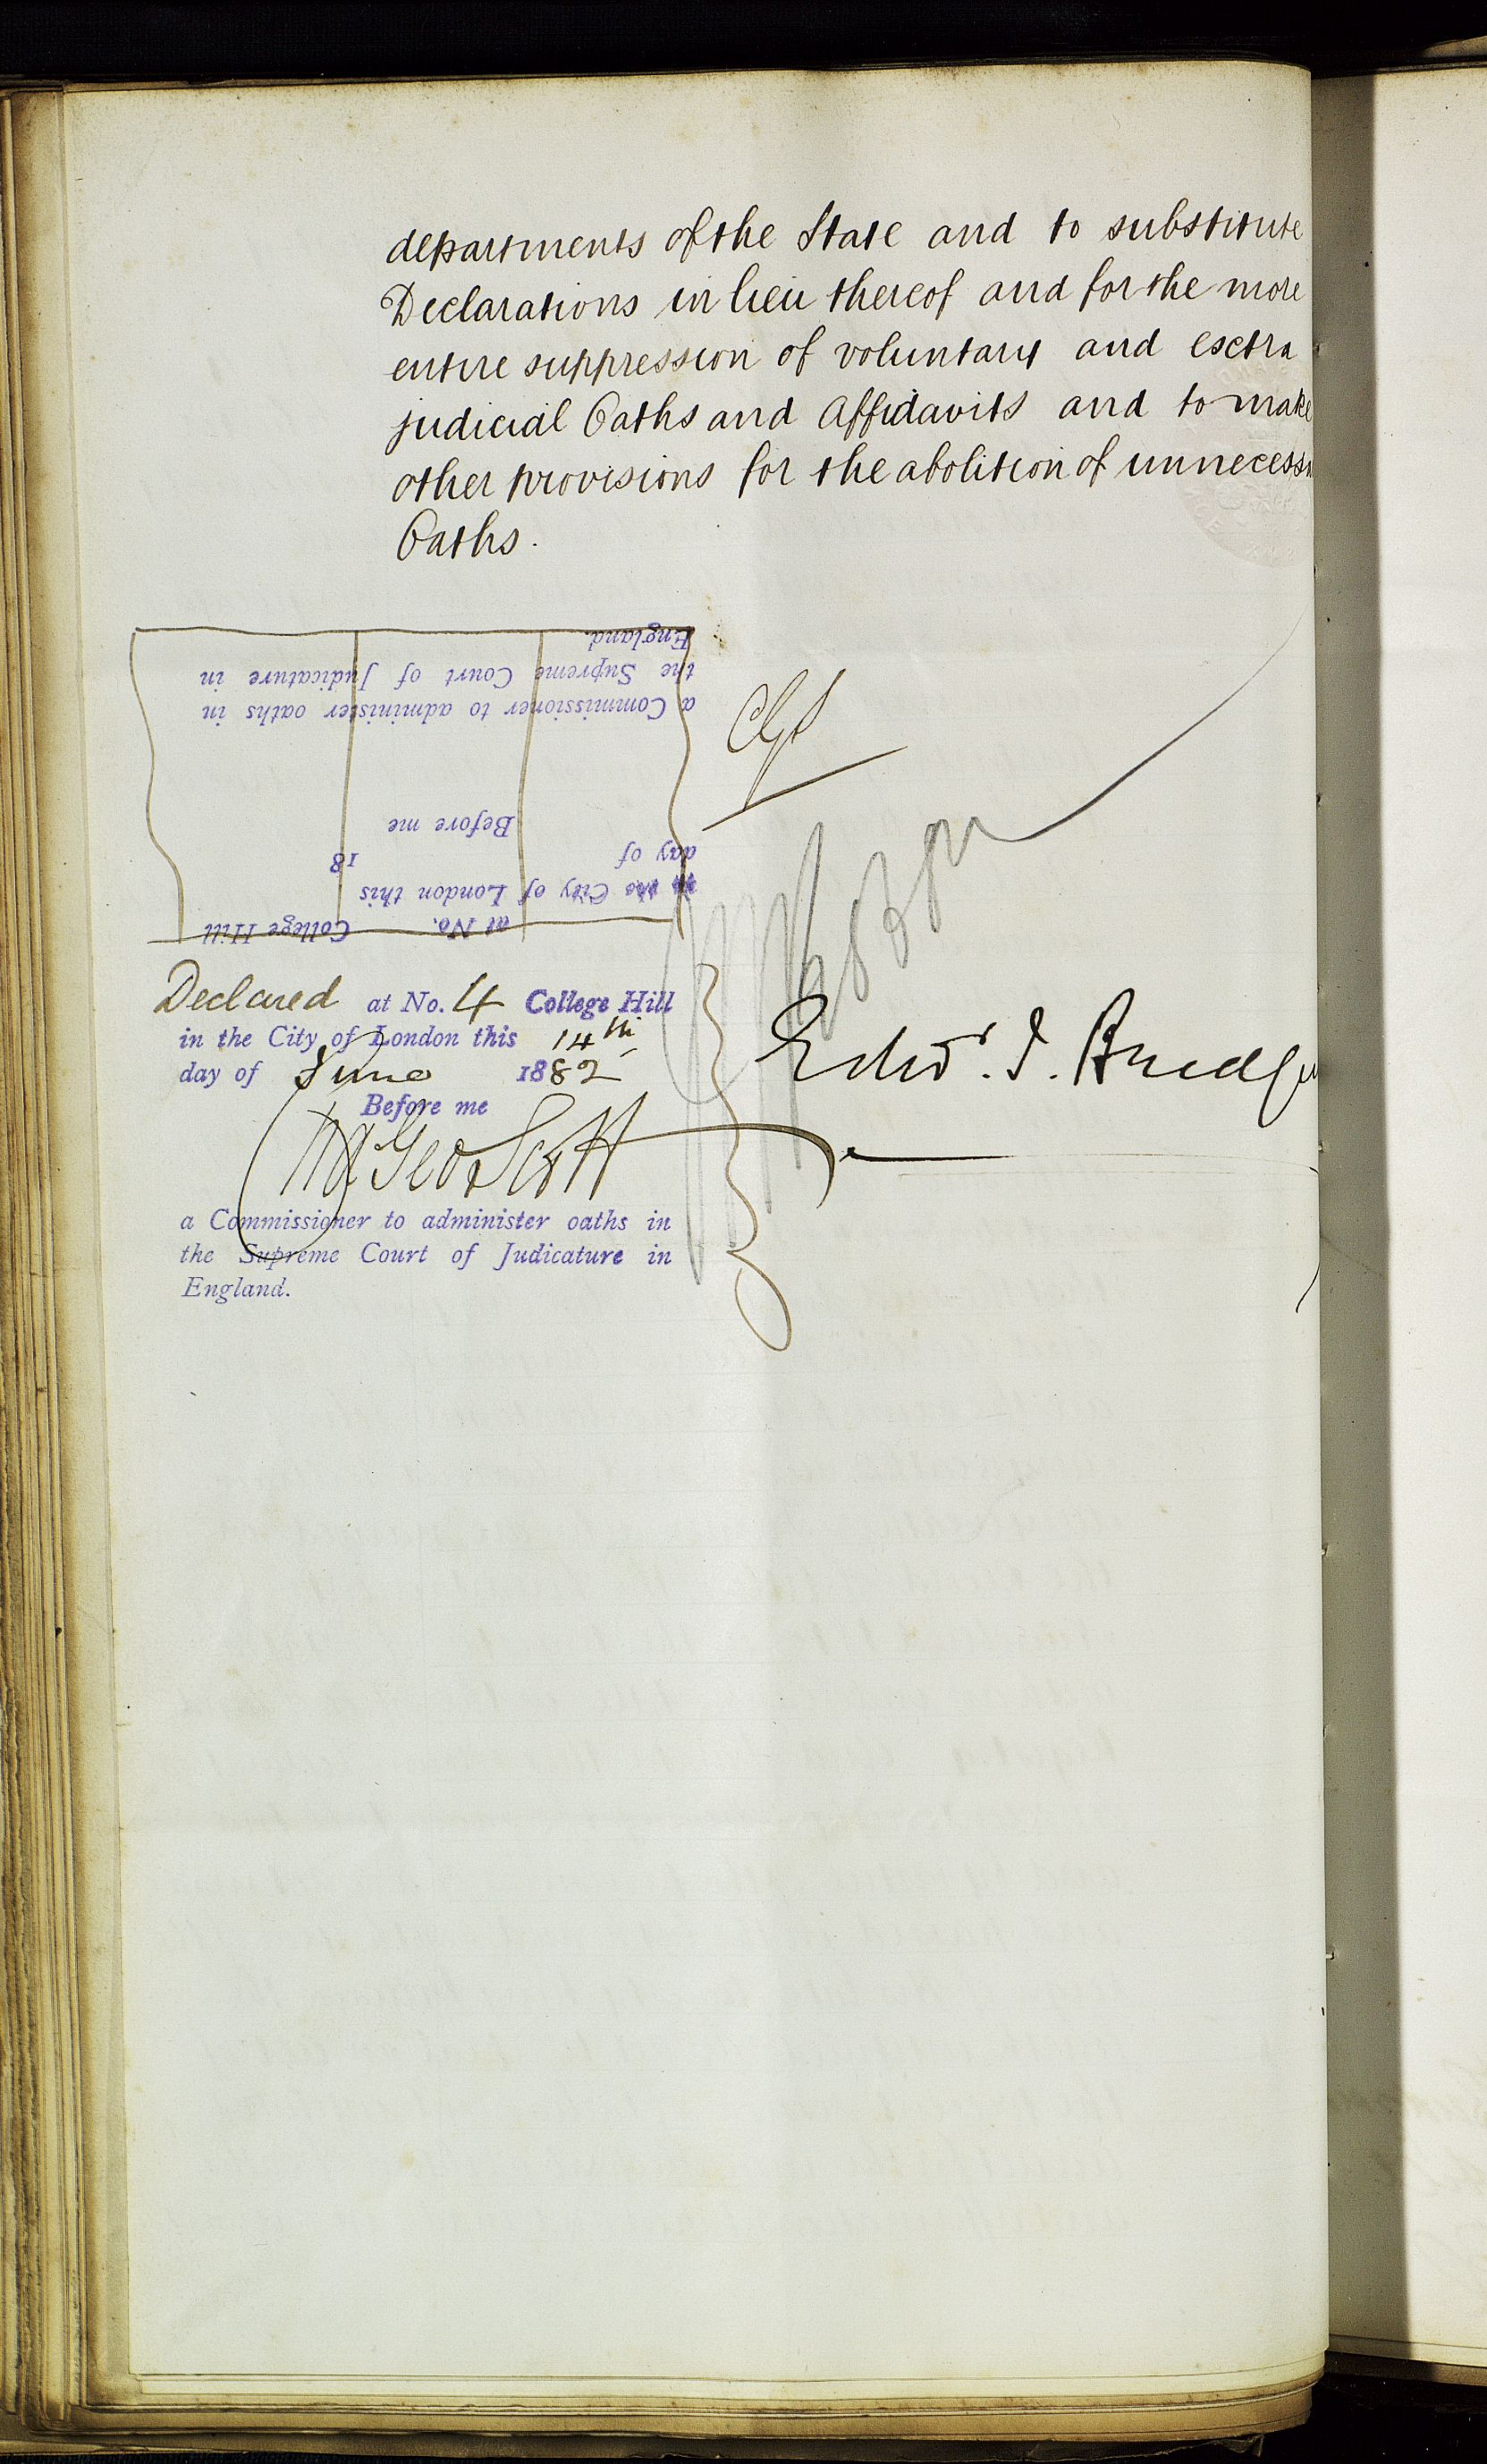 departments of the State and to substitute
Declarations in lieu thereof and for the more
entire suppression of voluntary and esctra
judicial Oaths and Affidavits and to make
other provisions for the abolition of unnecess
Oaths.
at No. College Hill
City of London this
day of 18
Before me
a Commissioner to administer oaths in
the Supreme Court of Judicature in
England.
Declared at No. 4 College Hill
in the City of London this 14th
day of June 1882
Before me
Geo Scott
a Commissioner to administer oaths in
the Supreme Court of Judicature in
England.
Edwd.